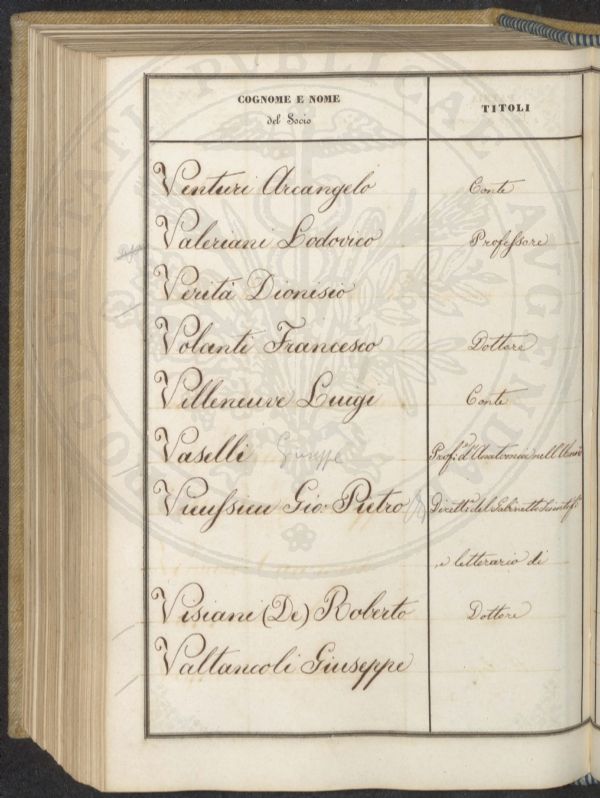 COGNOME E NOME
del Socio
TITOLI
Venturi Arcangelo Conte
Valeriani Lodovico Professore
Verità Dionisio
Volanti Francesco Dottore
Villeneuve Luigi Conte
Vaselli Giuseppe Prof.re d'Anatomia nell'
Vieusseux Gio: Pietro Dirett.e del Gabinetto Scientif.o
e letterario di
Visiani (De) Roberto Dottore
Valtancoli Giuseppe
PROSPERITATI PUBLICAE AUGENDAE